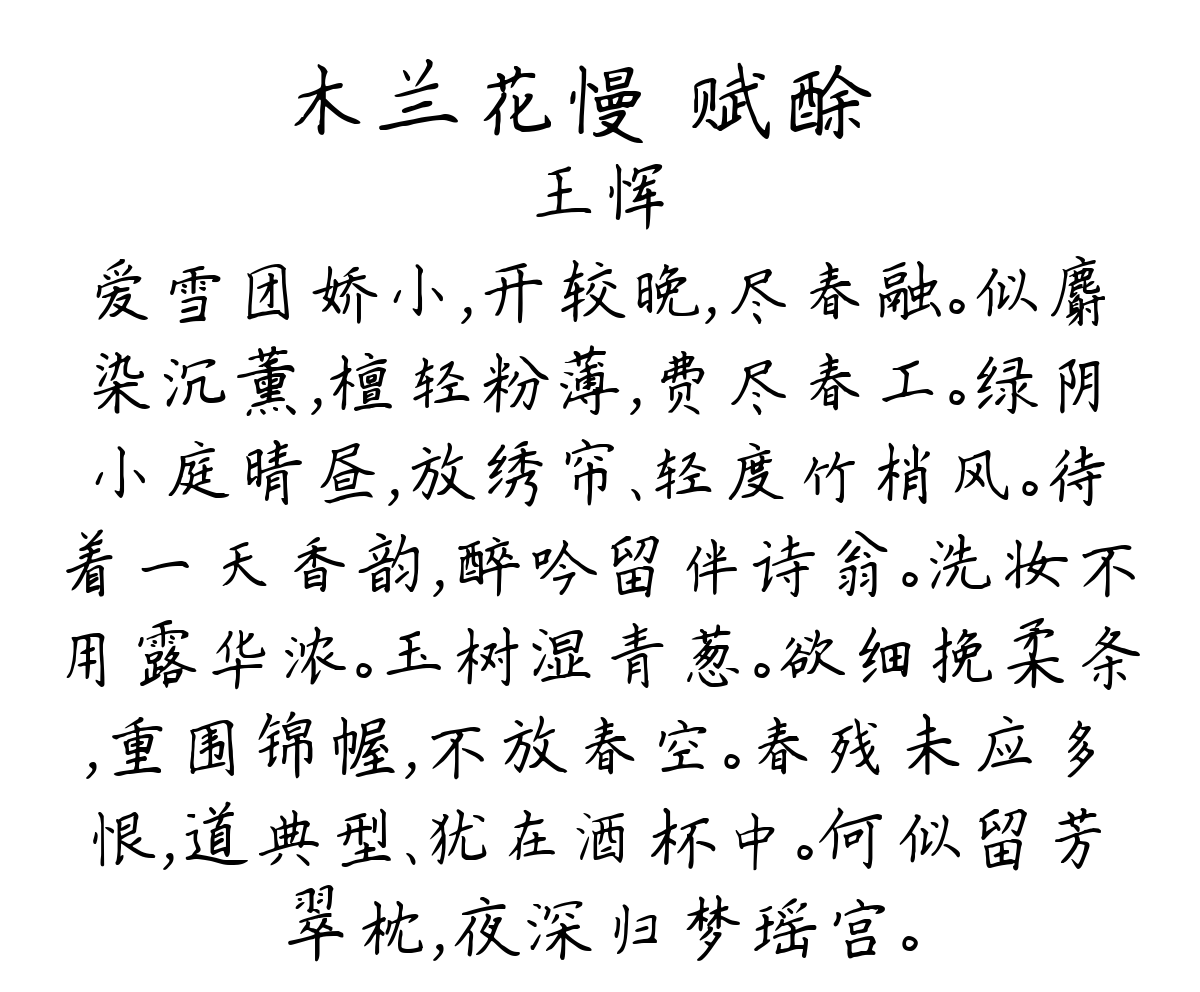 木兰花慢 赋酴
王恽
爱雪团娇小,开较晚,尽春融。似麝
染沉薰,檀轻粉薄,费尽春工。绿阴
小庭晴昼,放绣帘、轻度竹梢风。待
着一天香韵,醉吟留伴诗翁。洗妆不
用露华浓。玉树湿青葱。欲细挽柔条
,重围锦幄,不放春空。春残未应多
恨,道典型、犹在酒杯中。何似留芳
翠枕,夜深归梦瑶宫。